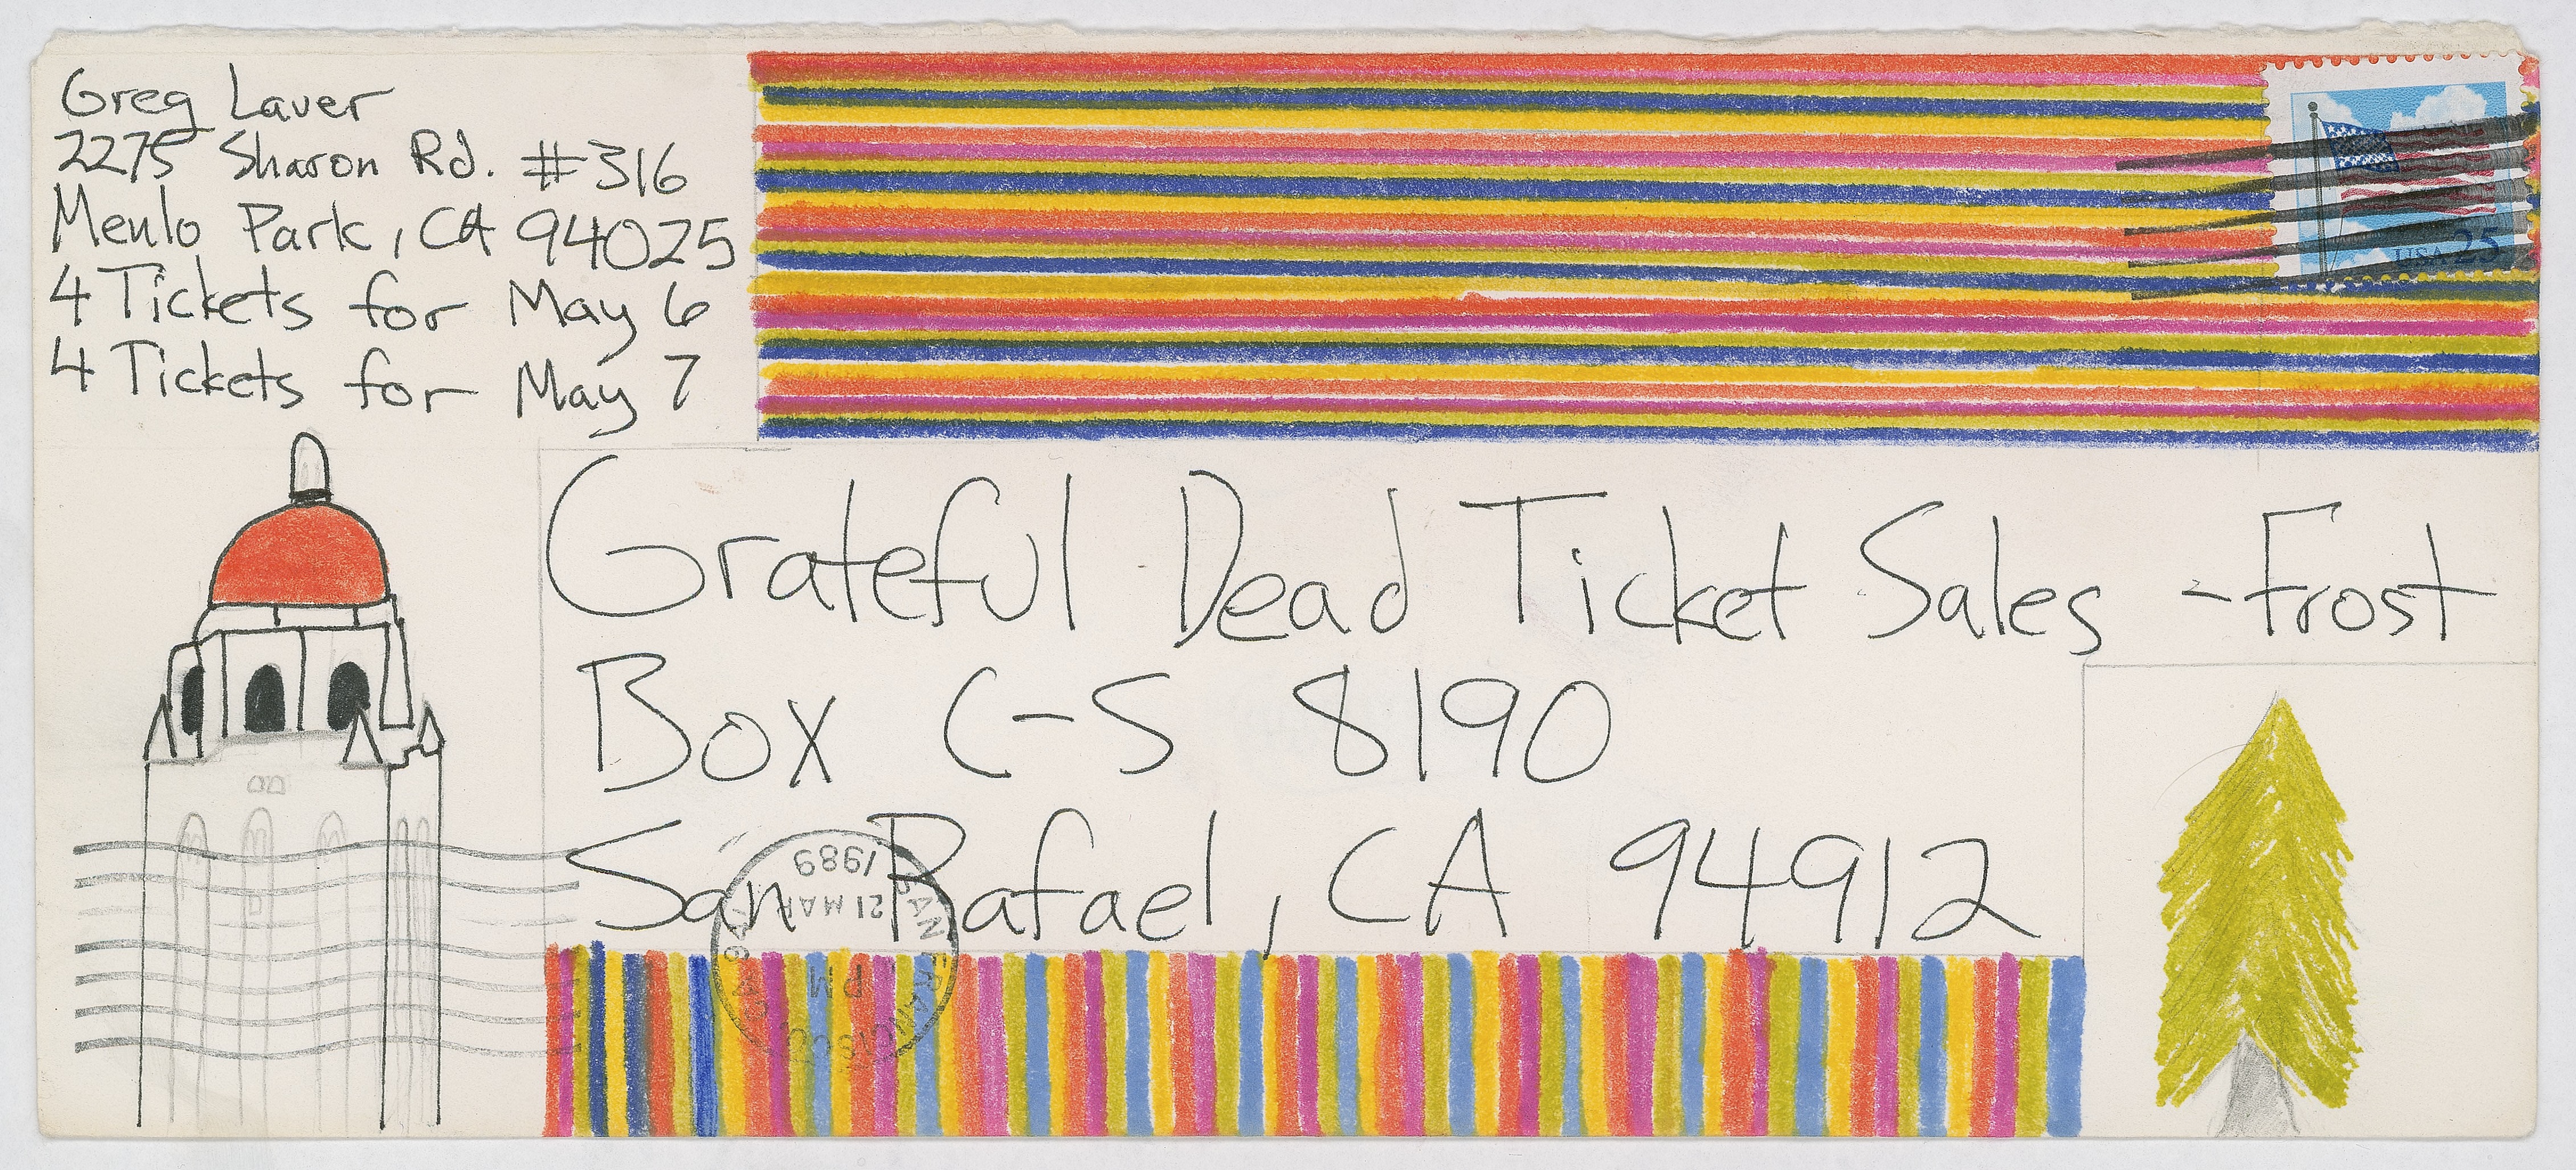 Greg Laver
2275 Sharon Rd. #316
Menlo Park, CA 94025
4 Tickets for May 6
4 Tickets for May 7
USA 25
Grateful Dead Ticket Sales - Frost
Box C-S 8190
San Rafael, CA 94912
SAN FRANCISCO, CA
PM
21 MAR
1989